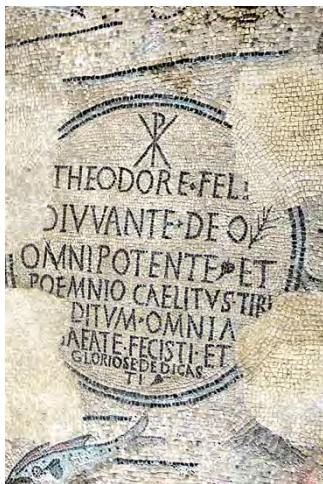 THEODORE·FELI
DIVVANTE·DEO
OMNIPOTENTE ET
POEMNIO CAELITVS TIBI
DITVM·OMNIA
AEATE·FECISTI·ET
GLORIOSE DEDICAS
TI